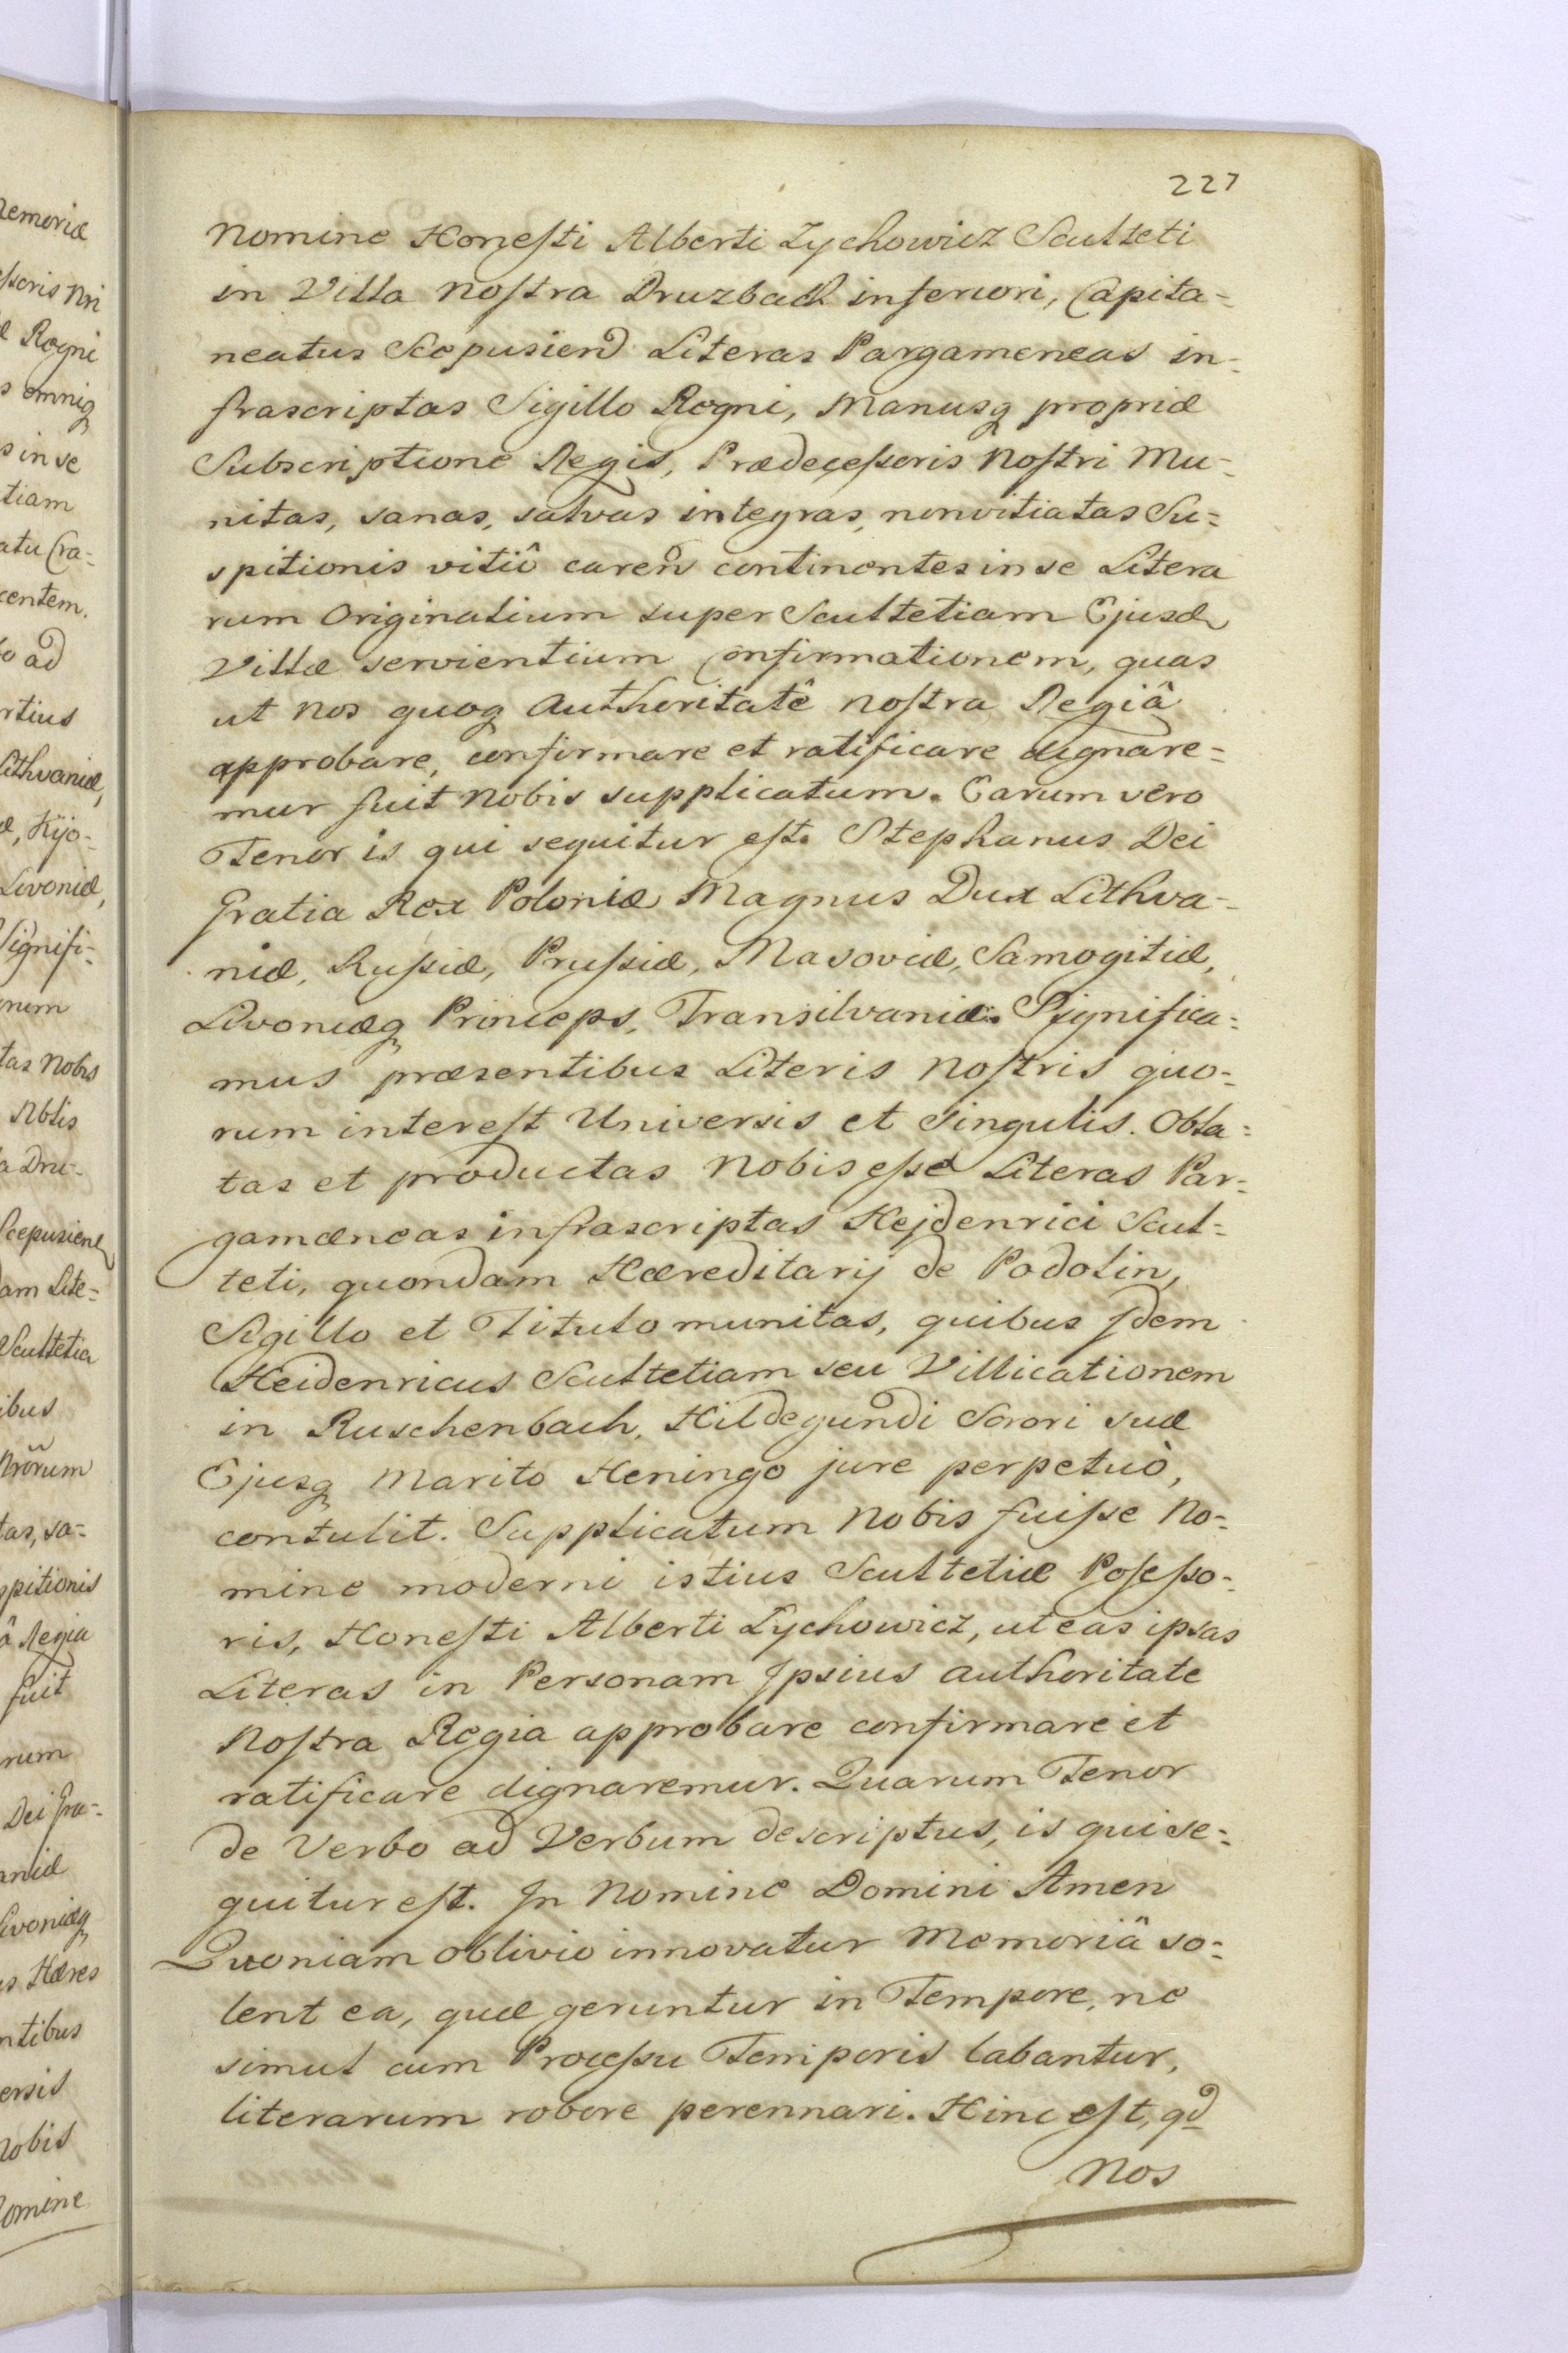 227
Nomine Honesti Alberti Lychowicz Sculteti
in Villa Nostra Druzbach inferiori, Capita-
neatus Scepusien Literas Pargameneas in-
frascriptas Sigillo Regni, Manusq propriæ
Subscriptione Regis, Prædecessoris Nostri Mu-
nitas, sanas, salvas integras, nonvitiatas Su-
spitionis vitiô caren continentes in se Litera
rum Originalium super Scultetiam Ejusd
Villæ servientium Confirmationem, quas
ut Nos quoq Authoritatê Nostra Regiâ
approbare, confirmare et ratificare dignare-
mur fuit Nobis supplicatum. Earum vero
Tenor is qui sequitur est. Stephanus Dei
Gratia Rex Poloniæ Magnus Dux Lithva-
niæ, Russiæ, Prussiæ, Masoviæ, Samogitiæ,
Livoniæq Princeps, Transilvaniæ. Significa-
mus præsentibus Literis Nostris quo-
rum interest Universis et Singulis. Obla-
tas et productas Nobis esse Literas Par-
gamæneas infrascriptas Hejdenrici Scul-
teti, quondam Hæreditarij de Podolin,
Sigillo et Titulo munitas, quibus Idem
Heidenricus Scultetiam seu Villicationem
in Ruschenbach, Hildegundi Sorori suæ
Ejusq Marito Heningo jure perpetuò,
contulit. Supplicatum Nobis fuisse No-
mine moderni istius Scultetiæ Posesso-
ris, Honesti Alberti Lychowicz, ut eas ipsas
Literas in Personam Ipsius authoritate
Nostra Regia approbare confirmare et
ratificare dignaremur. Quarum Tenor
de Verbo ad Verbum descriptus, is qui se-
quitur est. In Nomine Domini Amen
Quoniam oblivio innovatur Memoriâ so-
lent ea, quæ geruntur in Tempore, ne
simul cum Processu Temporis labantur,
literarum robore perennari. Hinc est, qd
Nos